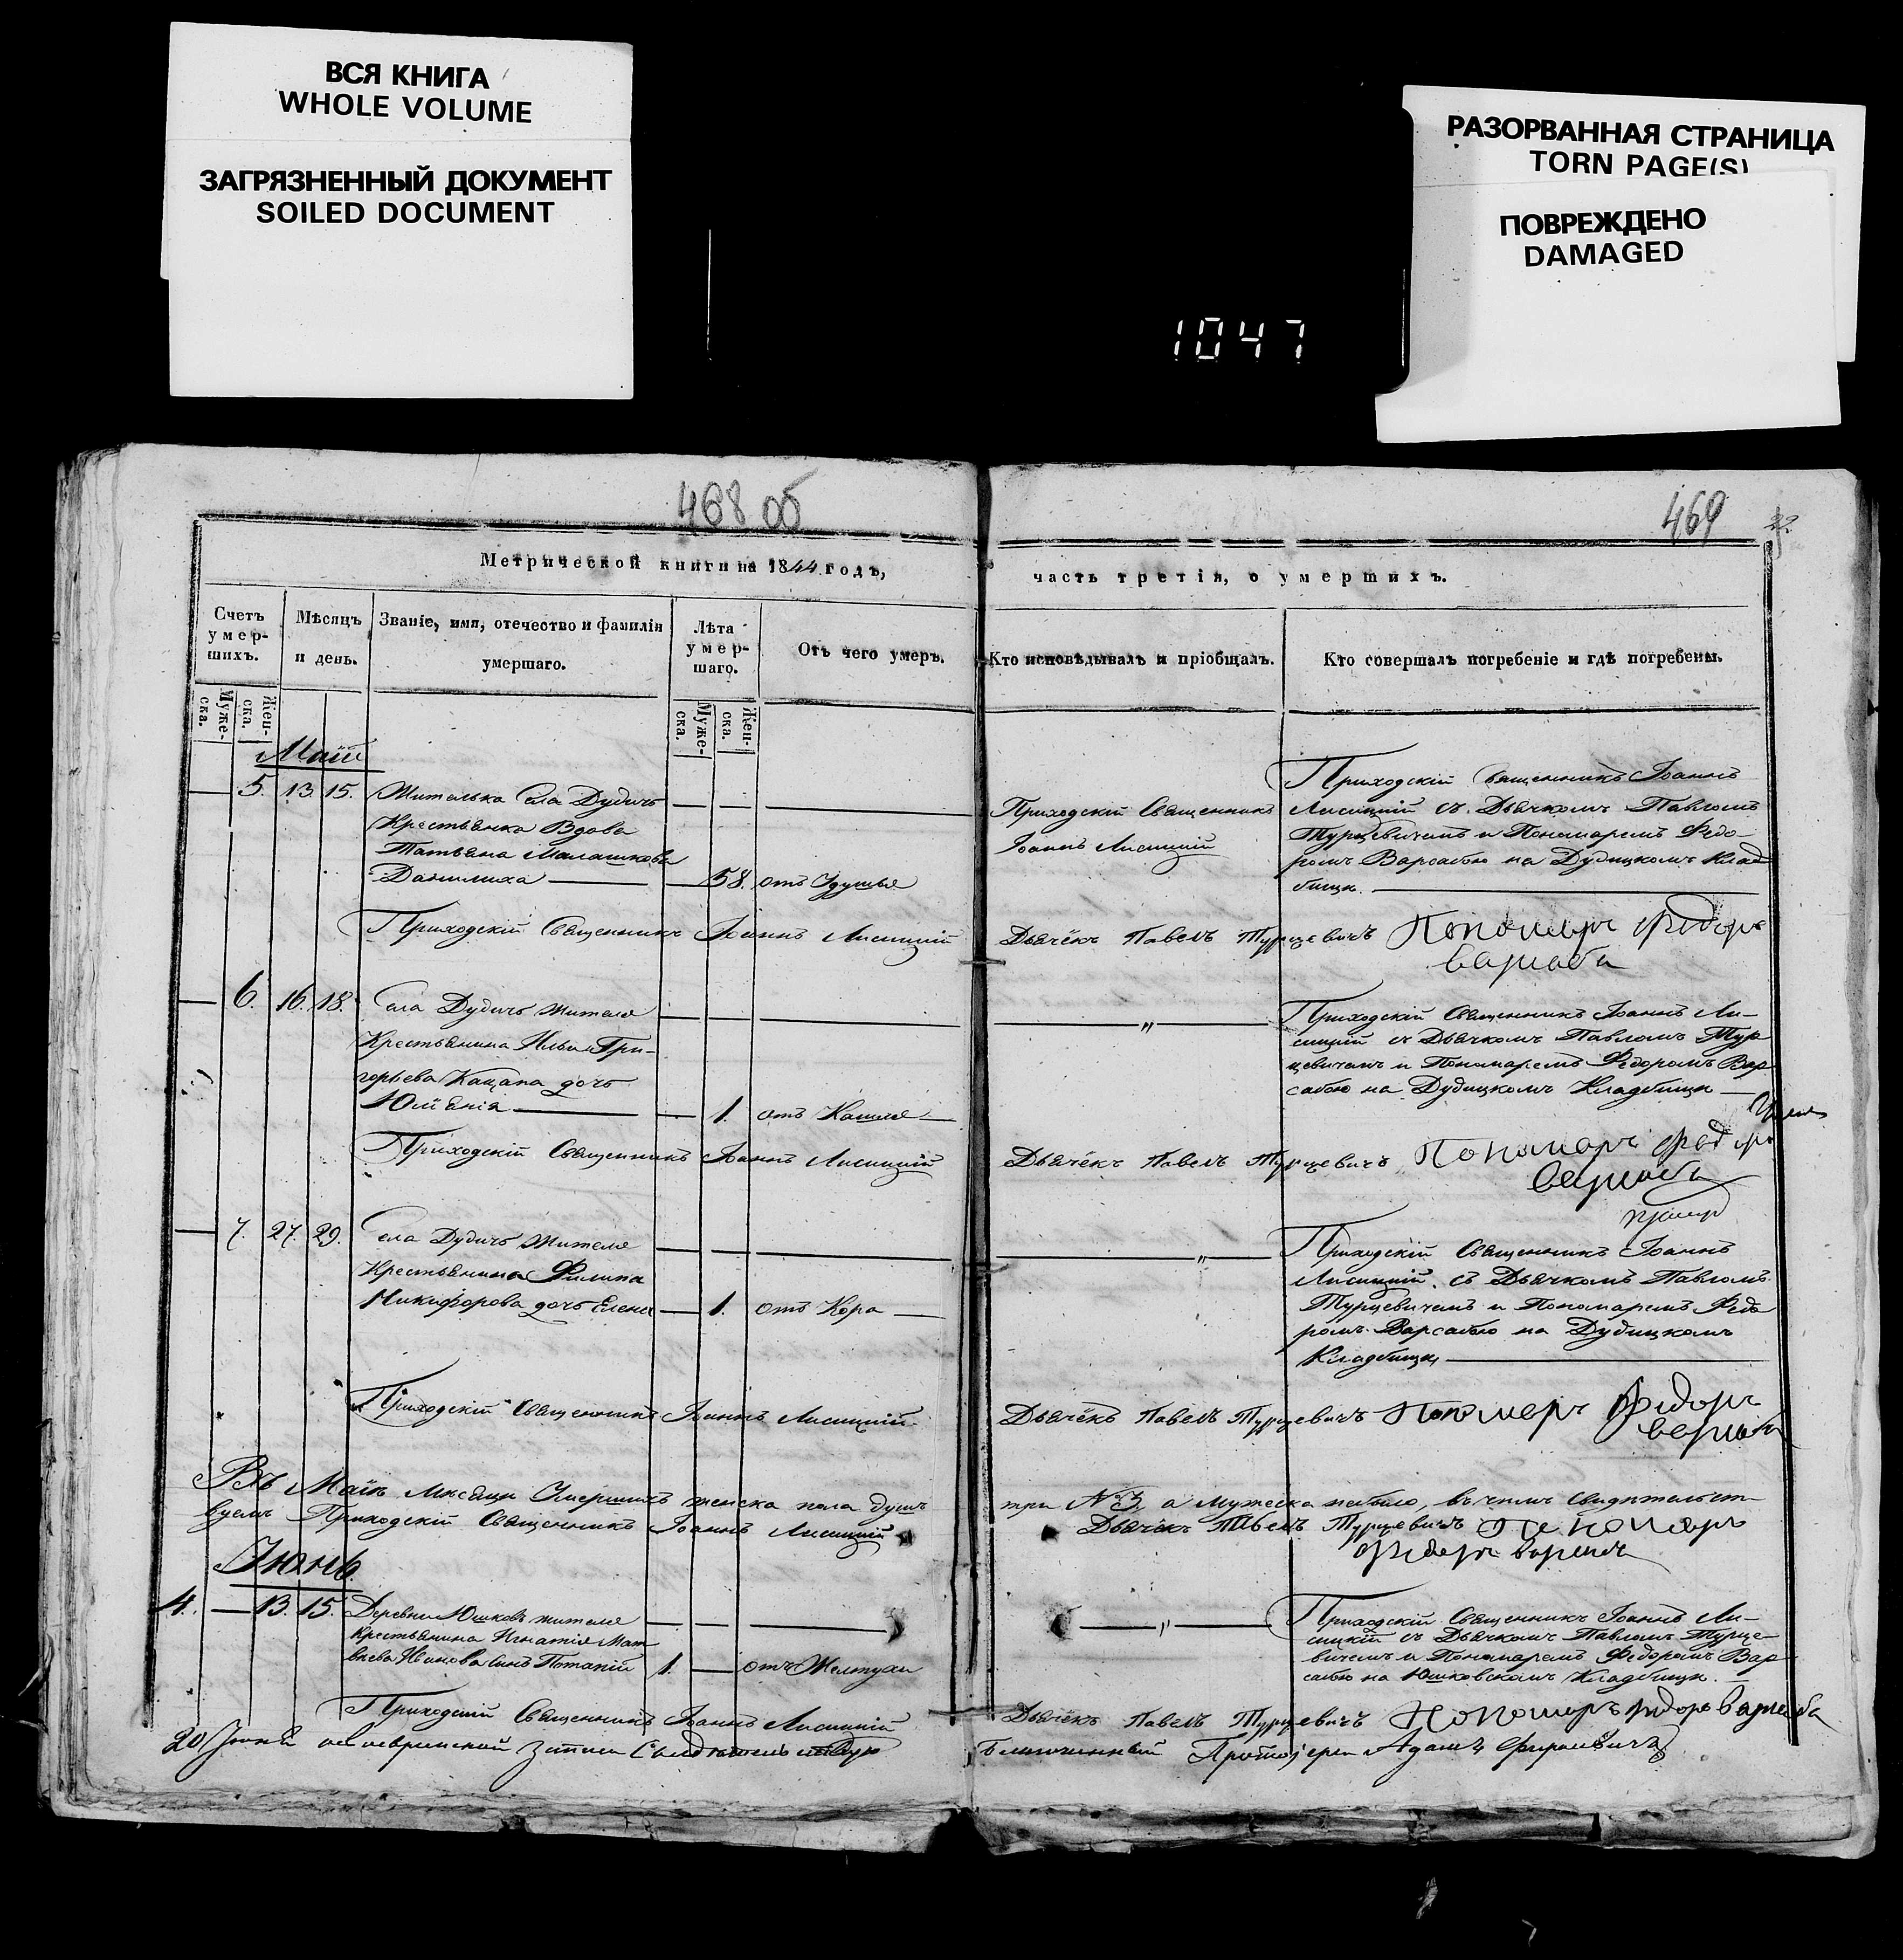 ВСЯ КНИГА
WHOLE VOLUME
ЗАГРЯЗНЕННЫЙ ДОКУМЕНТ
SOILED DOCUMENT
РАЗОРВАННАЯ СТРАНИЦА
TORN PAGE(S)
ПОВРЕЖДЕНО
DAMAGED
1047
468 об
Метрической книги на 1844 годъ,
Счетъ умер-шихъ.
Мѣсяцъ и день.
Званіе, имя, отечество и фамилія умершаго.
Лѣта умер-шаго.
Отъ чего умеръ.
Муже-ска.
Жен-ска.
Муже-ска.
Жен-ска.
Май
5. 13. 15. Жителька села Дудичъ
Крестьянка Вдова
Татьяна Малашкова
Данилиха 58. отъ Удушья
Приходскій Священникъ Іоаннъ Лисицкій
6. 16. 18. Села Дудичъ жителя
Крестьянина Ильи Гри-
горьева Кацапа дочь
Юлiанія 1. отъ Кашля
Приходскій Священникъ Іоаннъ Лисицкій
7. 27. 29. Села Дудичъ жителя
Крестьянина Филипа
Никифорова дочь Елена 1. отъ Кора
Приходскій Священникъ Іоаннъ Лисицкій
Въ Маѣ Мѣсяцѣ Умершихъ женска пола душъ
вуемъ Приходскій Священникъ Іоаннъ Лисицкій
Іюнь
4. 13. 15. Деревни Юшковъ жителя
Крестьянина Игнатія Мат
вѣева Иванова сынъ Потапій 1. отъ Желтухи
Приходскій Священникъ Іоаннъ Лисицкій
20 Іюня
469
часть третія, о умершихъ.
Кто исповѣдывалъ и пріобщалъ.
Кто совершалъ погребеніе и гдѣ погребены.
Приходскій Священникъ
Іоаннъ Лисицкій
Приходскій Священникъ Іоаннъ
Лисицкій съ Дьячкомъ Павломъ
Турцевичемъ и Пономаремъ Федо-
ромъ Варсабою на Дудицкомъ Клад
бищѣ.
Дьячёкъ Павелъ Турцевичъ Пономарь Федоръ
Варсаба
" Приходскій Священникъ Іоаннъ Ли-
сицкій съ Дьячкомъ Павломъ Тур
цевичемъ и Пономаремъ Федоромъ Вар
сабою на Дудицкомъ Кладбищѣ
Дьячёкъ Павелъ Турцевичъ Пономарь Федоръ
Варсаба
" Приходскій Священникъ Іоаннъ
Лисицкій съ Дьячкомъ Павломъ
Турцевичемъ и Пономаремъ Федо
ромъ Варсабою на Дудицкомъ
Кладбищѣ
Дьячёкъ Павелъ Турцевичъ Пономарь Федоръ
Варсаба
три №3. а Мужеска небыло, въ чемъ свидѣтельст
Дьячёкъ Павелъ Турцевичъ Пономарь
Федоръ Варсаба
" Приходскій Священникъ Іоаннъ Ли-
сицкій съ Дьячкомъ Павломъ Турце
вичемъ и Пономаремъ Федоромъ Вар
сабою на Юшковскомъ Кладбищѣ.
Дьячёкъ Павелъ Турцевичъ Пономарь Федоръ Варсаба
Благочинный Протоіерей Адамъ